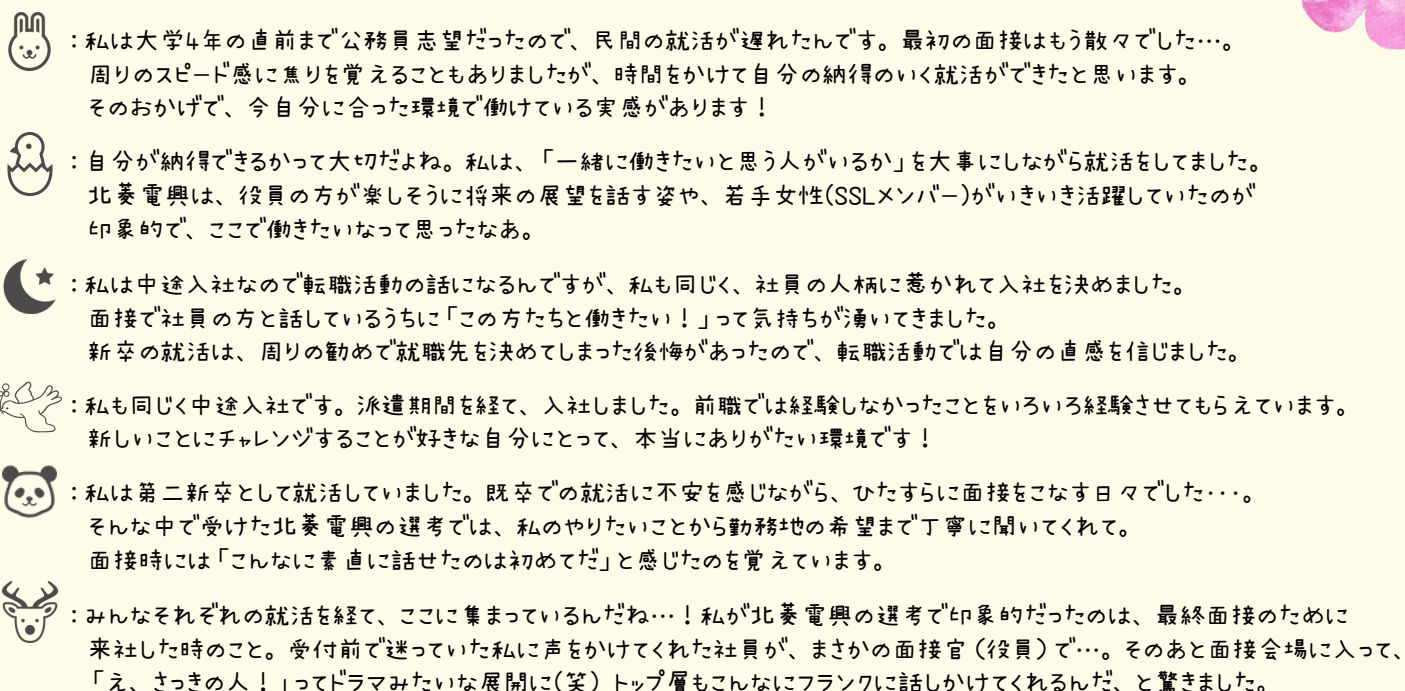 ：私は大学4年の直前まで公務員志望だったので、民間の就活が遅れたんです。最初の面接はもう散々でした…。
周りのスピード感に焦りを覚えることもありましたが、時間をかけて自分の納得のいく就活ができたと思います。
そのおかげで、今自分に合った環境で働けている実感があります！
：自分が納得できるかって大切だよね。私は、「一緒に働きたいと思う人がいるか」を大事にしながら就活をしてました。
北菱電興は、役員の方が楽しそうに将来の展望を話す姿や、若手女性(SSLメンバー)がいきいき活躍していたのが
印象的で、ここで働きたいなって思ったなあ。
：私は中途入社なので転職活動の話になるんですが、私も同じく、社員の人柄に惹かれて入社を決めました。
面接で社員の方と話しているうちに「この方たちと働きたい！」って気持ちが湧いてきました。
新卒の就活は、周りの勧めで就職先を決めてしまった後悔があったので、転職活動では自分の直感を信じました。
：私も同じく中途入社です。派遣期間を経て、入社しました。前職では経験しなかったことをいろいろ経験させてもらえています。
新しいことにチャレンジすることが好きな自分にとって、本当にありがたい環境です！
：私は第二新卒として就活していました。既卒での就活に不安を感じながら、ひたすらに面接をこなす日々でした・・・。
そんな中で受けた北菱電興の選考では、私のやりたいことから勤務地の希望まで丁寧に聞いてくれて。
面接時には「こんなに素直に話せたのは初めてだ」と感じたのを覚えています。
：みんなそれぞれの就活を経て、ここに集まっているんだね…！私が北菱電興の選考で印象的だったのは、最終面接のために
来社した時のこと。受付前で迷っていた私に声をかけてくれた社員が、まさかの面接官（役員）で…。そのあと面接会場に入って、
「え、さっきの人！」ってドラマみたいな展開に(笑) トップ層もこんなにフランクに話しかけてくれるんだ、と驚きました。